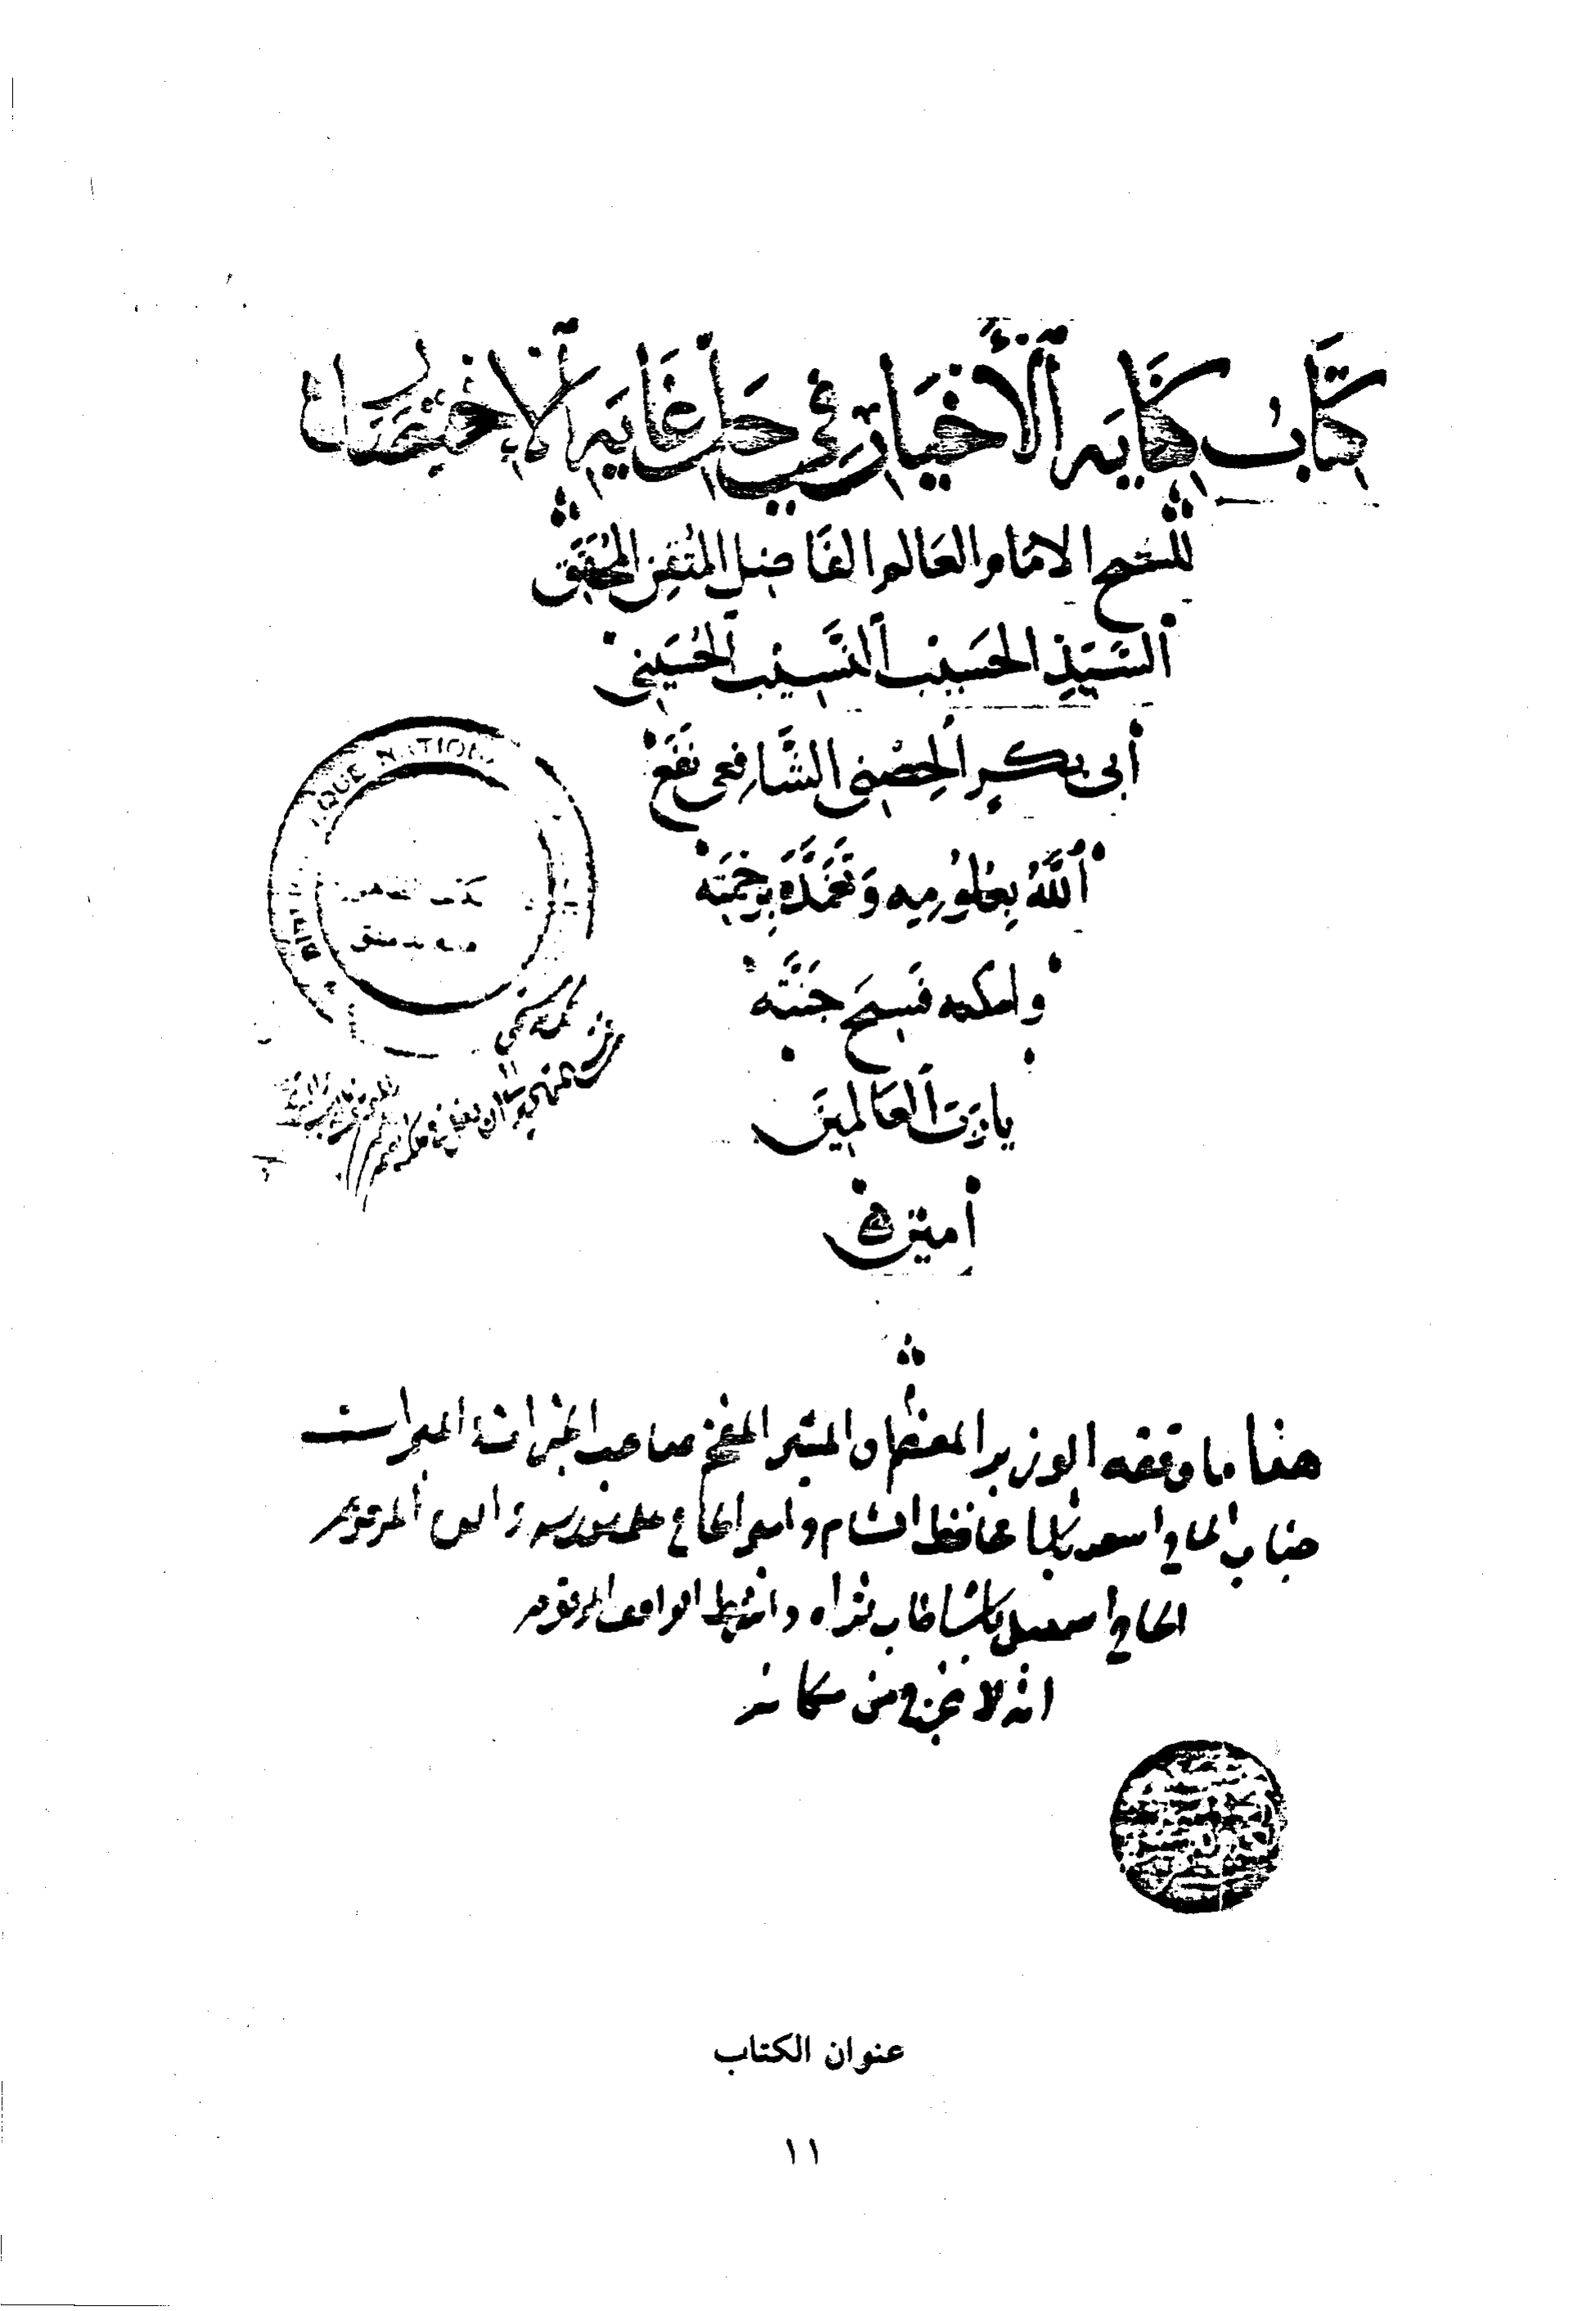 كتاب كفاية الأخيار في حل غاية الاختصار
للشيخ الامام العالم الفاضل المتقن المحقق
السيد الحسيب النسيب الحسيني
أبي بكر الحصني الشافعي نفع
الله بعلومه وتغمده برحمته
واسكنه فسيح جنته
يا رب العالمين
أمين
QUE NATION
هذا ما وقفه الوزير المعظم والمشير المفخم صاحب الخيرات والمبرات
جناب الحاج اسعد باشا محافظ الشام وامير الحاج على مدرسة والده المرحوم
الحاج اسمعيل باشا طاب ثراه وانشرط الواقف المرقوم
انه لا يخرج من مكانه
عنوان الكتاب
١١